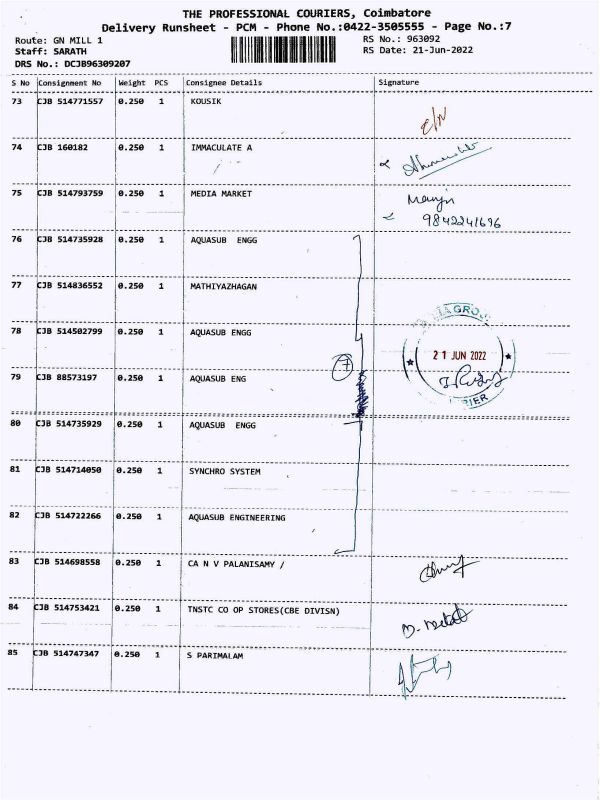 THE PROFESSIONAL COURIERS, Coimbatore
Delivery Runsheet - PCM - Phone No.:0422-3505555 - Page No.:7
Route: GN MILL 1 RS No.: 963092
Staff: SARATH RS Date: 21-Jun-2022
DRS No.: DCJB96309207
S No Consignment No Weight PCS Consignee Details Signature
73 CJB 514771557 0.250 1 KOUSIK
74 CJB 160182 0.250 1 IMMACULATE A
75 CJB 514793759 0.250 1 MEDIA MARKET
9842241696
76 CJB 514735928 0.250 1 AQUASUB ENGG
77 CJB 514836552 0.250 1 MATHIYAZHAGAN
78 CJB 514502799 0.250 1 AQUASUB ENGG
21 JUN 2022
7
79 CJB 88573197 0.250 1 AQUASUB ENG
80 CJB 514735929 0.250 1 AQUASUB ENGG
81 CJB 514714050 0.250 1 SYNCHRO SYSTEM
82 CJB 514722266 0.250 1 AQUASUB ENGINEERING
83 CJB 514698558 0.250 1 CA N V PALANISAMY /
84 CJB 514753421 0.250 1 TNSTC CO OP STORES(CBE DIVISN)
85 CJB 514747347 0.250 1 S PARIMALAM